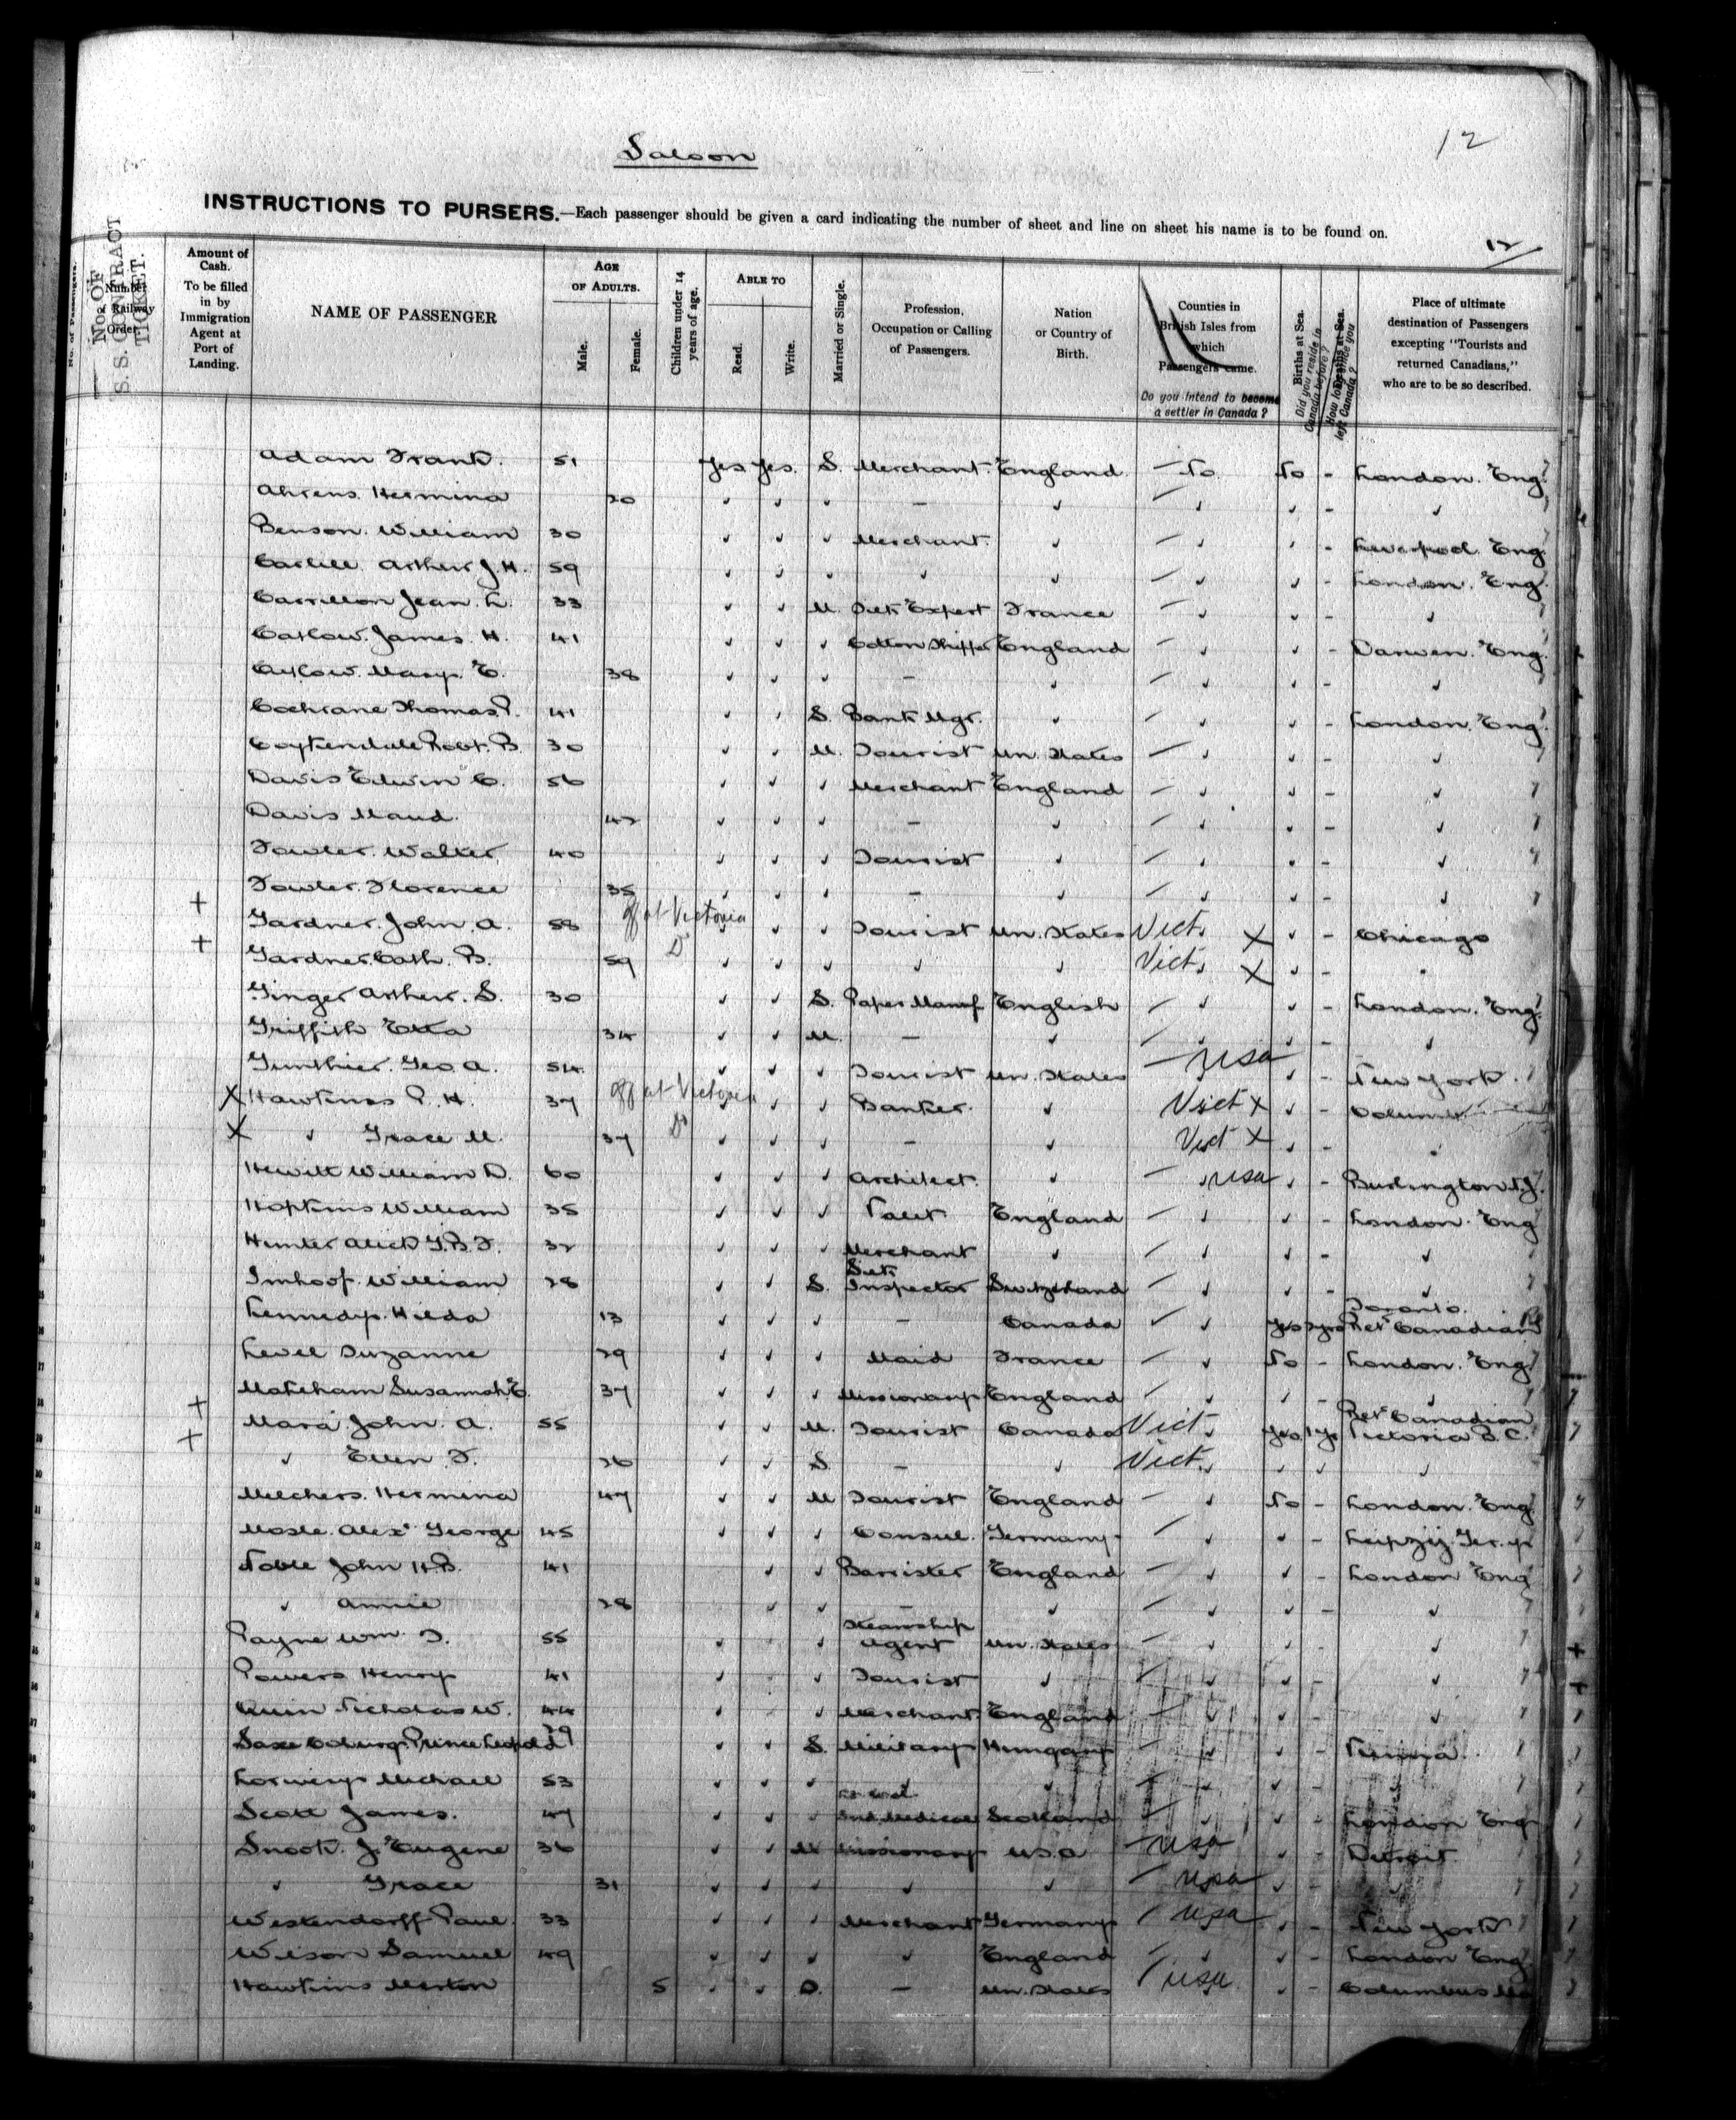 12
Saloon
INSTRUCTIONS TO PURSERS.—Each passenger should be given a card indicating the number of sheet and line on sheet his name is to be found on.
12
No. of Passengers.
Number of Railway Order
No. OF S.S. CONTRACT TICKET.
Amount of Cash. To be filled in by Immigration Agent at Port of Landing.
NAME OF PASSENGER
AGE OF ADULTS.
Male.
Female.
Children under 14 years of age.
ABLE TO
Read.
Write.
Married or Single.
Profession, Occupation or Calling of Passengers.
Nation or Country of Birth.
Counties in British Isles from which Passengers came.
Do you intend to become a settler in Canada?
Births at Sea.
Did you reside in Canada before?
Deaths at Sea.
How long since you left Canada?
Place of ultimate destination of Passengers excepting "Tourists and returned Canadians," who are to be so described.
Adam Frank. 51 Yes Yes. S. Merchant. England. — No No - London. Eng.
Ahrens. Hermina 20 ✓ ✓ ✓ — ✓ — ✓ ✓ - ✓
Benson. William 30 ✓ ✓ ✓ Merchant. ✓ — ✓ ✓ - Liverpool. Eng.
Carlill. Arthur J.H. 59 ✓ ✓ ✓ ✓ ✓ — ✓ ✓ - London. Eng.
Carrillon Jean. L. 33 ✓ ✓ M. Silk Expert France — ✓ ✓ - ✓
Catlow. James. H. 41 ✓ ✓ ✓ Cotton Shipper England — ✓ ✓ - Darwen. Eng.
Catlow. Mary. E. 38 ✓ ✓ ✓ — ✓ — ✓ ✓ - ✓
Cochrane Thomas. P. 41 ✓ ✓ S. Bank Mgr. ✓ — ✓ ✓ - London. Eng.
Coykendall Robt. B. 30 ✓ ✓ M. Tourist Un. States — ✓ ✓ - ✓
Davis Edwin C. 56 ✓ ✓ ✓ Merchant England — ✓ ✓ - ✓
Davis Maud. 42 ✓ ✓ ✓ — ✓ — ✓ ✓ - ✓
Fowler. Walter 40 ✓ ✓ ✓ Tourist ✓ — ✓ ✓ - ✓
Fowler. Florence 35 ✓ ✓ ✓ — ✓ — ✓ ✓ - ✓
+ Gardner. John. A. 58 off at Victoria ✓ ✓ ✓ Tourist Un. States Vict. X ✓ - Chicago
+ Gardner. Cath. B. 59 D ✓ ✓ ✓ ✓ ✓ Vict. X ✓ - "
Ginger Arthur. S. 30 ✓ ✓ S. Paper Manuf English — ✓ ✓ - London. Eng.
Griffith Etta 34 ✓ ✓ M. — ✓ — ✓ ✓ - ✓
Gunthier. Geo. A. 54 ✓ ✓ ✓ Tourist Un. States — USA ✓ - New York.
X Hawkins P. H. 37 off at Victoria ✓ ✓ ✓ Banker. ✓ Vict X ✓ -
X ✓ Grace M. 37 D ✓ ✓ ✓ — ✓ Vict X ✓ - ✓
Hewitt William D. 60 ✓ ✓ ✓ Architect. ✓ — USA ✓ - Burlington N.J.
Hopkins William 35 ✓ ✓ ✓ Valet England — ✓ ✓ - London. Eng
Hunter Alick G.B.F. 32 ✓ ✓ ✓ Merchant ✓ — ✓ ✓ - ✓
Imhoof. William 28 ✓ ✓ S. Silk Inspector Switzerland — ✓ ✓ - ✓
Kennedy. Hilda 13 ✓ ✓ ✓ — Canada ✓ ✓ Yes Toronto. Ret Canadian
Level Suzanne 29 ✓ ✓ ✓ Maid France — ✓ No - London. Eng.
Mateham Susannah. E. 37 ✓ ✓ ✓ Missionary England — ✓ ✓ - ✓
+ Mara John. A. 55 ✓ ✓ M. Tourist Canada Vict. Yes 1 yr Ret Canadian Victoria B.C.
+ ✓ Ellen F. 26 ✓ ✓ S. — ✓ Vict. ✓ ✓ ✓ ✓
Melchers. Hermina 47 ✓ ✓ M Tourist England — ✓ No - London. Eng
Mosle. Alex George 45 ✓ ✓ ✓ Consul. Germany. — ✓ ✓ - Leipzig. Ger.y
Noble John H.B. 41 ✓ ✓ Barrister England — ✓ ✓ - London Eng
✓ Annie 28 ✓ ✓ — ✓ — ✓ ✓ - ✓
Payne Wm. F. 55 ✓ ✓ Steamship Agent Un. States — ✓ ✓ - ✓
Powers Henry 41 ✓ ✓ Tourist ✓ — ✓ ✓ - ✓
Quin Nicholas W. 44 ✓ ✓ Merchant. England — ✓ ✓ - ✓
Saxe Coburg. Prince Leopold 29 ✓ ✓ S. Military Hungary — ✓ ✓ - Vienna.
Michael 53 ✓ ✓ ✓ ✓ ✓ — ✓ ✓ - ✓
Scott James. 47 ✓ ✓ ✓ Medical Scotland — ✓ ✓ - London Eng
Snook. J. Eugene 36 ✓ ✓ M Missionary U.S.A — USA ✓ - Detroit.
✓ Grace 31 ✓ ✓ ✓ ✓ ✓ — USA ✓ - ✓
Westendorff Paul. 33 ✓ ✓ ✓ Merchant Germany — USA ✓ - New York
Wilson Samuel 49 ✓ ✓ ✓ ✓ England — ✓ ✓ - London Eng.
Hawkins Merton 5 ✓ ✓ — Un. States — USA ✓ - Columbus